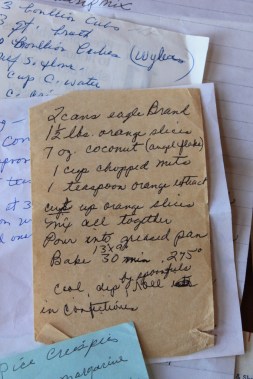 mix
3 boullion Cubs
3 pt. broth
boullion Cubes (Wylers)
cup C. water
2 cans eagle Brand
1½ lbs. orange slices
7 oz. coconut (angel flake)
1 cup chopped nuts
1 teaspoon orange extract
cut up orange slices
mix all together
Pour into greased pan
13x9
Bake 30 min. 275°
by spoonfuls
Cool, dip, Roll
in confetiones
Rice Crispies
margarine